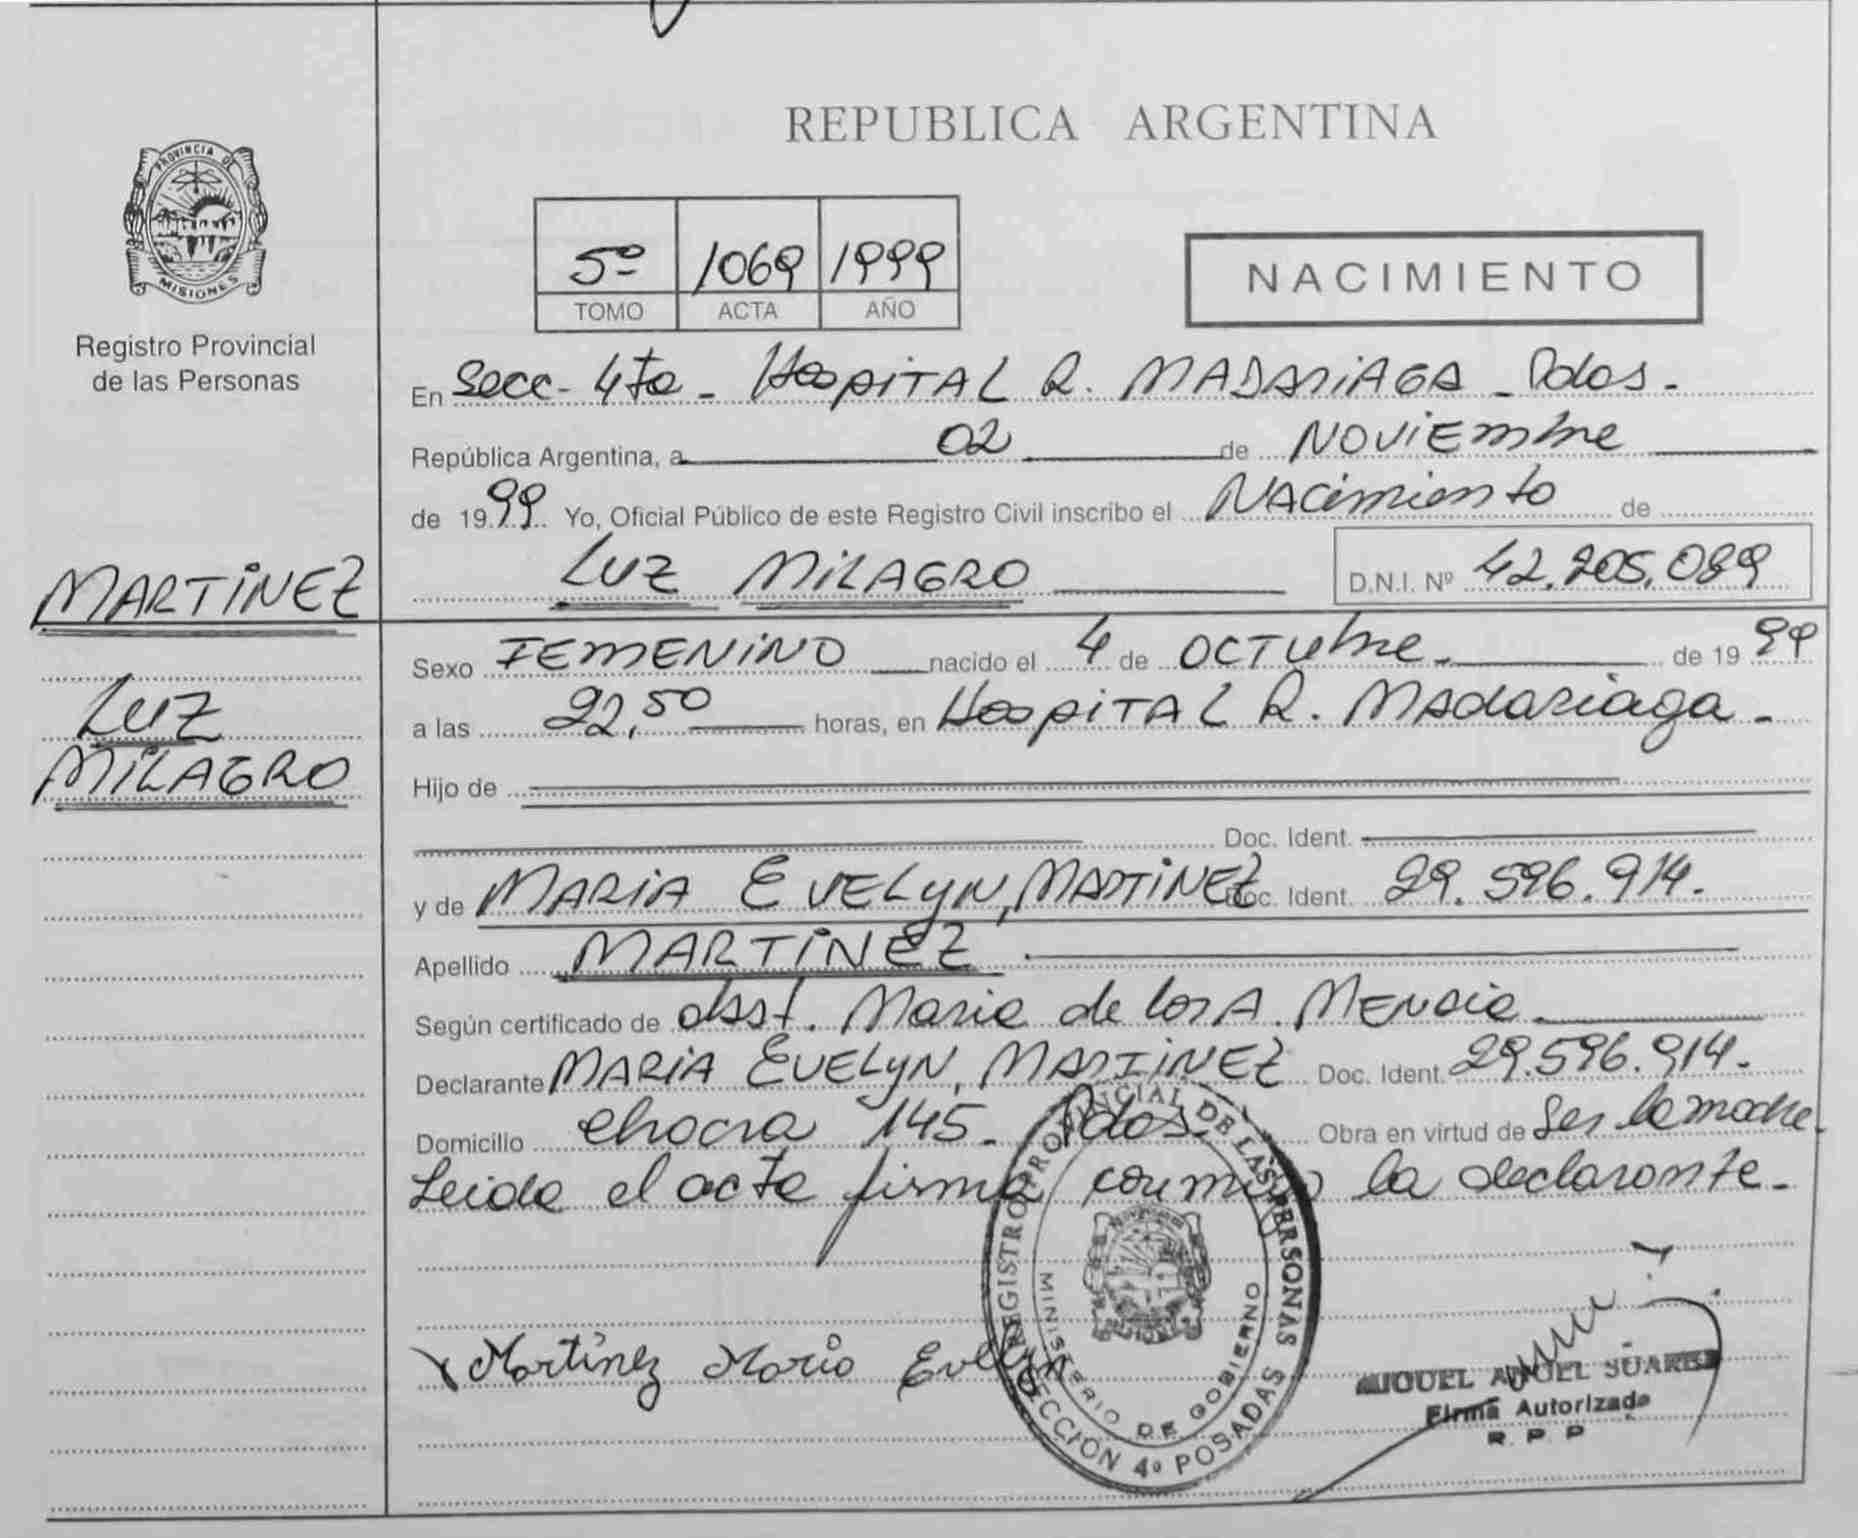 REPUBLICA ARGENTINA
PROVINCIA DE
MISIONES
Registro Provincial
de las Personas
5º 1069 1999
TOMO ACTA AÑO
NACIMIENTO
En Secc- 4ta - Hospital R. MADARIAGA - Pdas.
República Argentina, a 02 de NOVIEMbre
de 1999 Yo, Oficial Público de este Registro Civil inscribo el NAcimiento de
LUZ MILAGRO D.N.I. Nº 42.205.089
MARTINEZ
LUZ
MILAGRO
Sexo FEMENINO nacido el 4 de OCTUbre de 1999
a las 22,50 horas, en Hospital R. Madariaga.
Hijo de
Doc. Ident.
y de MARIA EVELYN, MARTINEZ Doc. Ident. 29.596.914.
Apellido MARTINEZ
Según certificado de obst. Maria de los A. Mencia
Declarante MARIA EVELYN, MARTINEZ Doc. Ident. 29.596.914.
Domicilio chacra 145. Pdas. Obra en virtud de Ser la madre.
Leida el acta firma conmigo la declarante.
Martinez Maria Evelyn
REGISTRO PROVINCIAL DE LAS PERSONAS
MINISTERIO DE GOBIERNO
SECCIÓN 4º POSADAS
MIGUEL ANGEL SUAREZ
Firma Autorizada
R. P. P